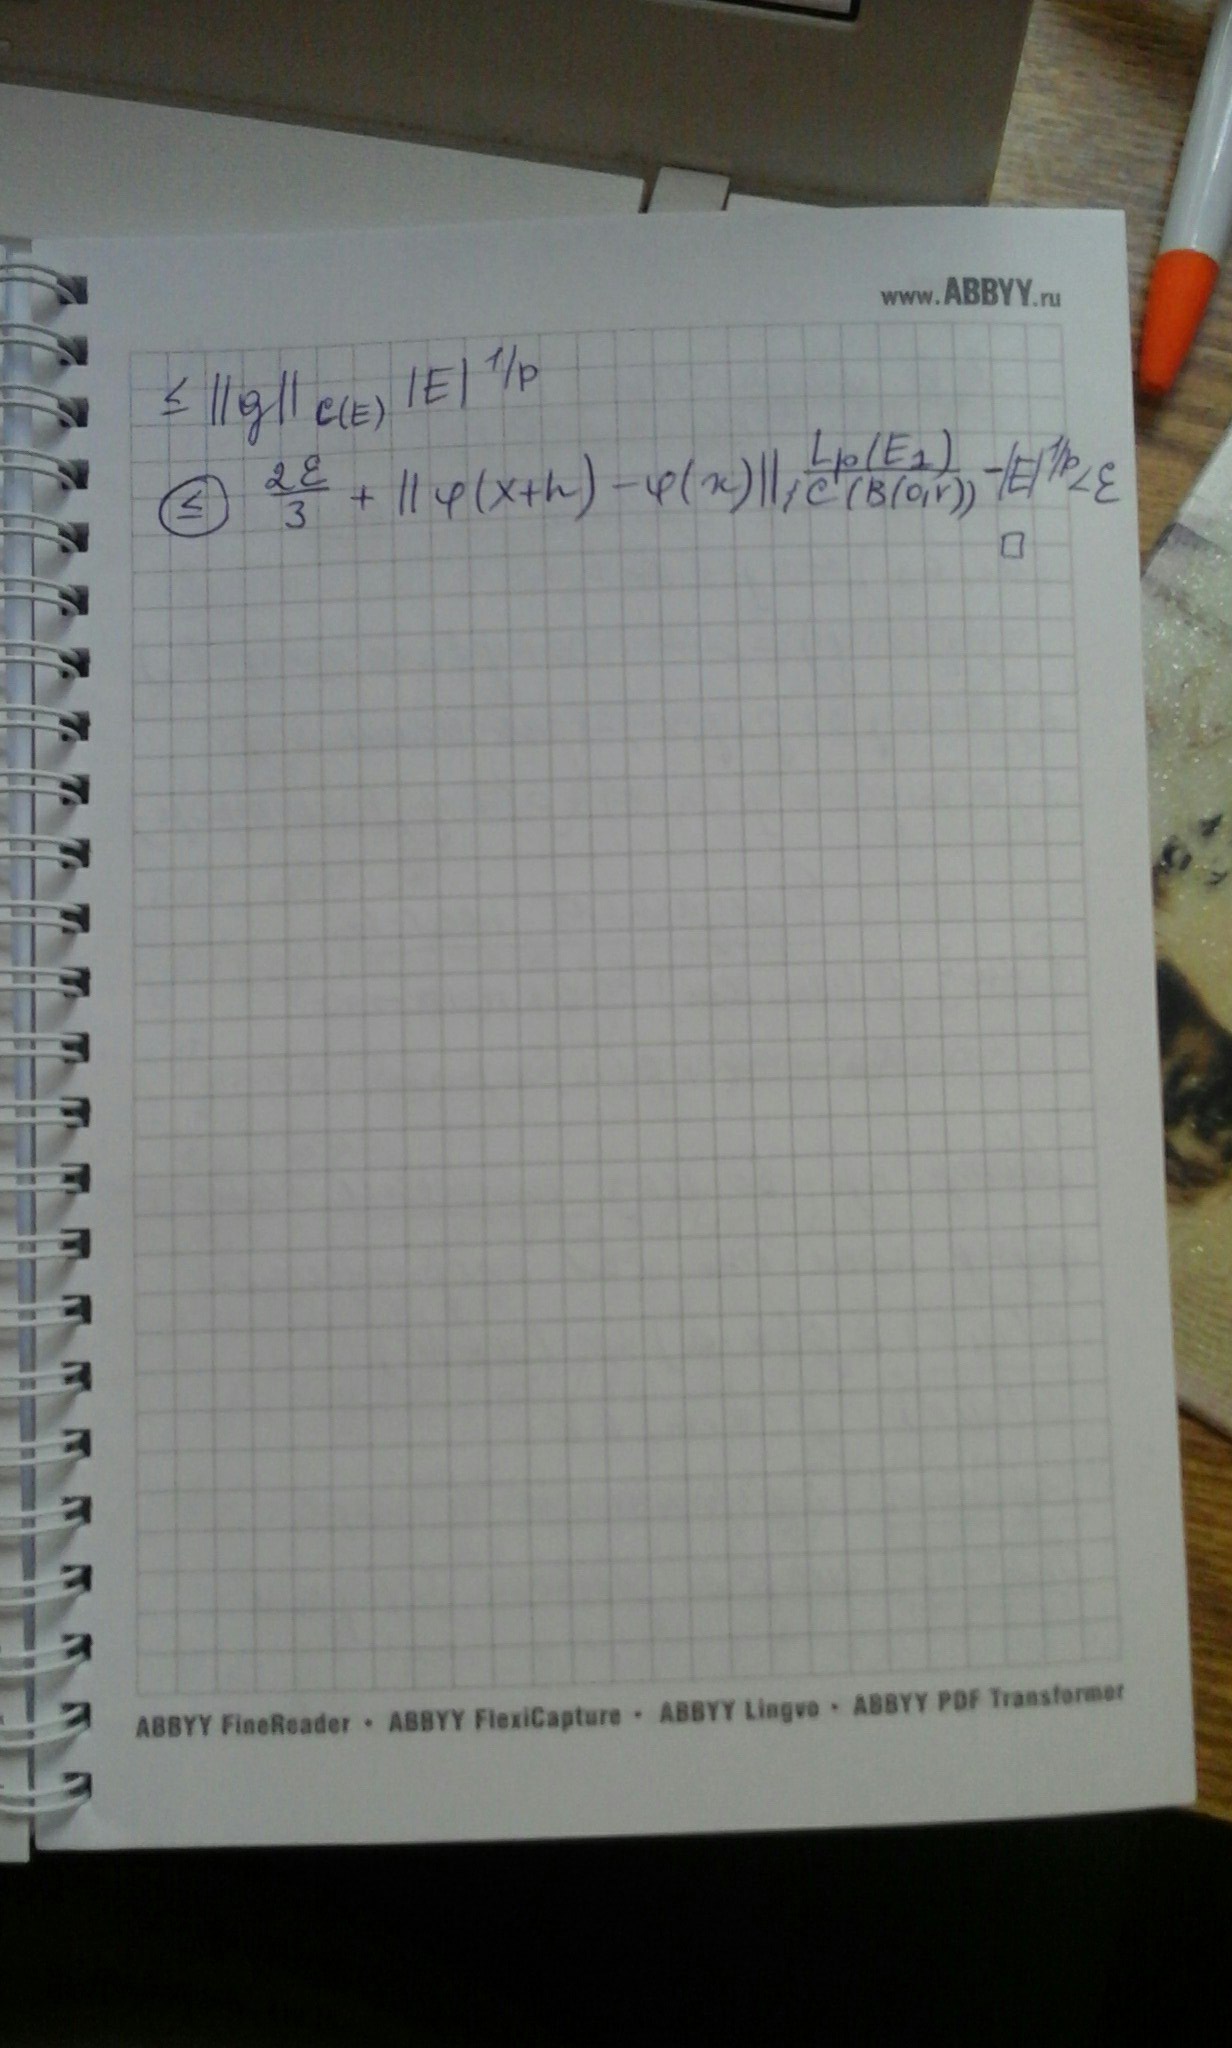 www.ABBYY.ru
≤ ||g|| C(E) |E|^{1/p}
≤ 2ε/3 + ||φ(x+h) - φ(x)|| Lp(E1) / C(B(0,r)) - |E|^{1/p} < ε
□
ABBYY FineReader • ABBYY FlexiCapture • ABBYY Lingvo • ABBYY PDF Transformer